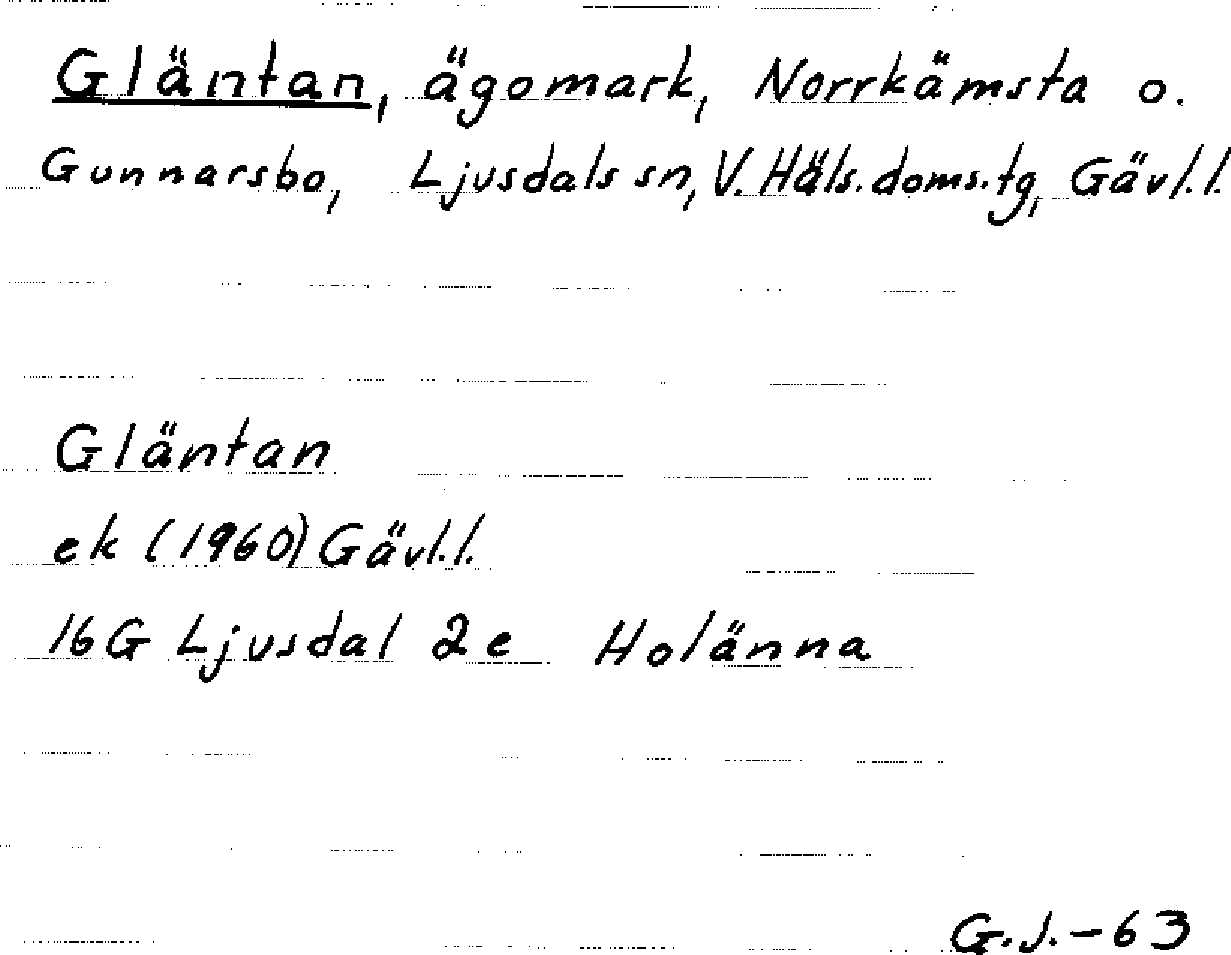 Gläntan, ägomark, Norrkämsta o.
Gunnarsbo, Ljusdals sn, V. Häls. doms. tg, Gävl.l.
Gläntan
ek (1960) Gävl.l.
16G Ljusdal 2e Holänna
G.J.-63